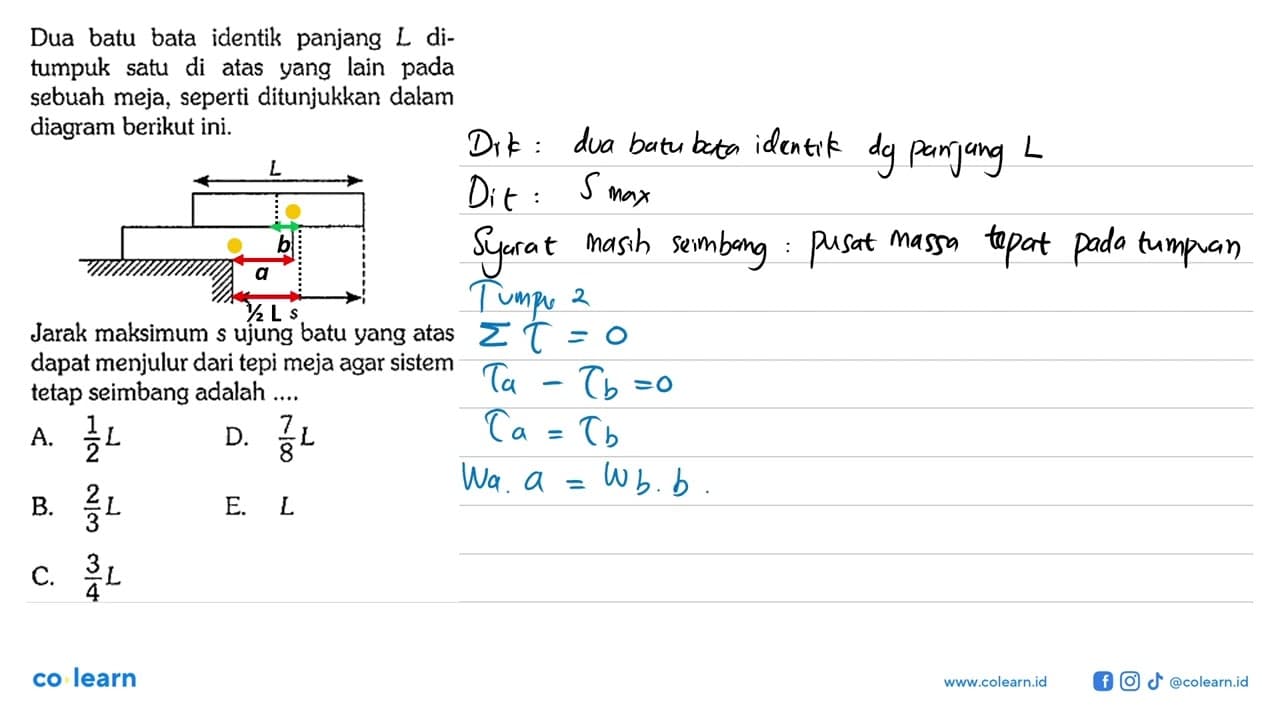 Dua batu bata identik panjang L di-
tumpuk satu di atas yang lain pada
sebuah meja, seperti ditunjukkan dalam
diagram berikut ini.
L
b
a
½ L s
Jarak maksimum s ujung batu yang atas
dapat menjulur dari tepi meja agar sistem
tetap seimbang adalah ....
A. 1/2 L
D. 7/8 L
B. 2/3 L
E. L
C. 3/4 L
Dik : dua batu bata identik dg panjang L
Dit : S max
Syarat masih seimbang : pusat massa tepat pada tumpuan
Tumpu 2
Σ τ = 0
τa - τb = 0
τa = τb
Wa. a = Wb. b.
co learn
www.colearn.id
@colearn.id